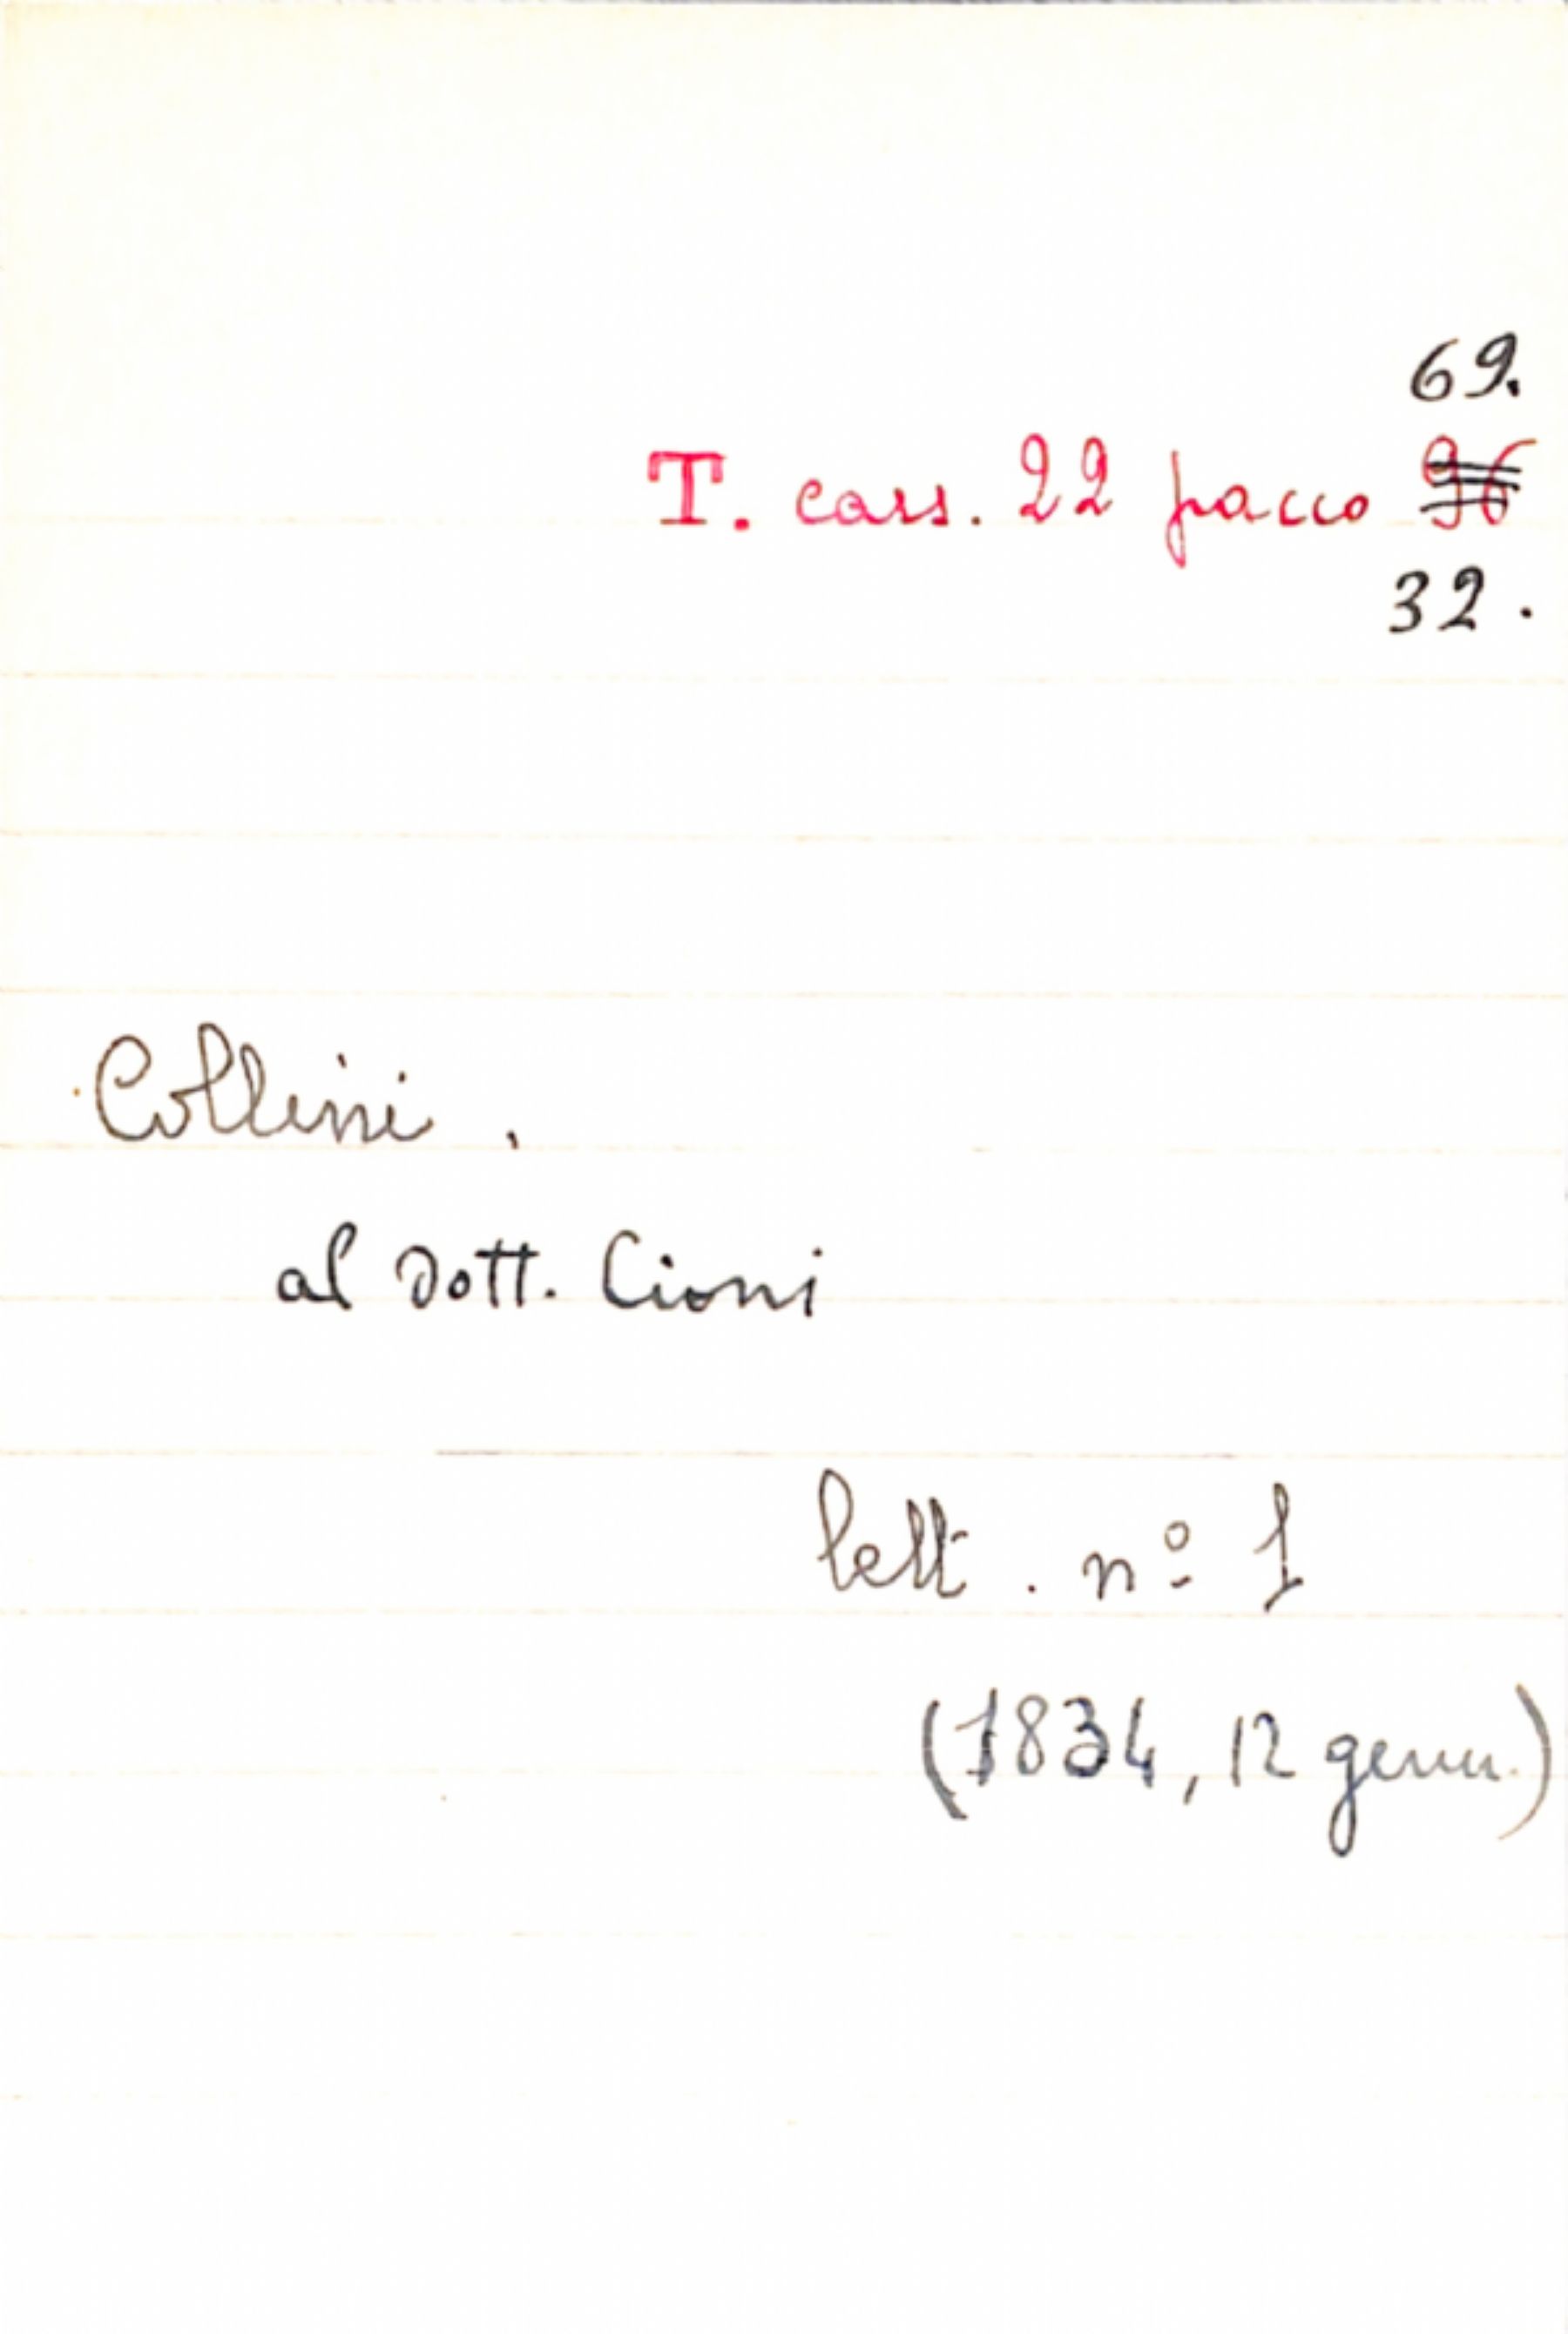 69.
T. cass. 22 pacco 96
32.
Collini.
al Dott. Cioni
lett. nº 1
(1834, 12 genn.)